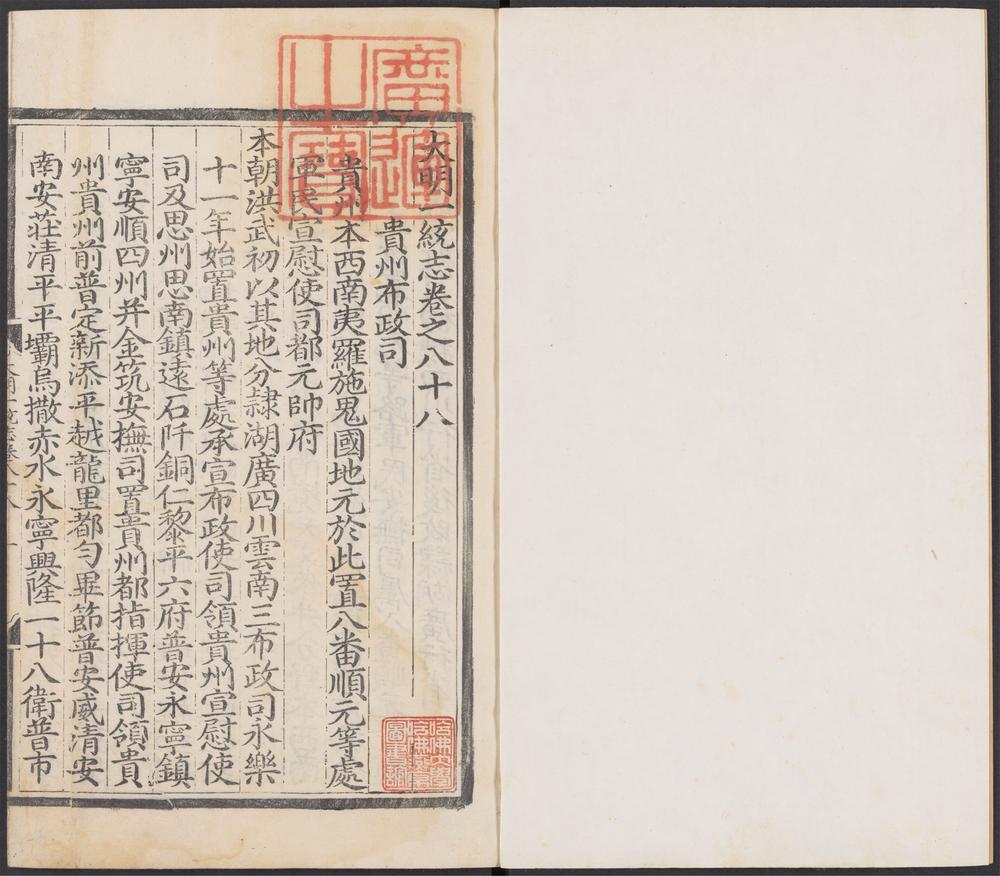 大明一統志卷之八十八
貴州布政司
貴州本西南夷羅施鬼國地元於此置八番順元等處
軍民宣慰使司都元帥府
本朝洪武初以其地分隷湖廣四川雲南三布政司永樂
十一年始置貴州等處承宣布政使司領貴州宣慰使
司及思州思南鎮遠石阡銅仁黎平六府普安永寧鎮
寧安順四州并金筑安撫司置貴州都指揮使司領貴
州貴州前普定新添平越龍里都勻畢節普安威清安
南安莊清平平壩烏撒赤水永寧興隆一十八衛普市
廣運
之寶
哈佛大學
哈佛燕京
圖書館